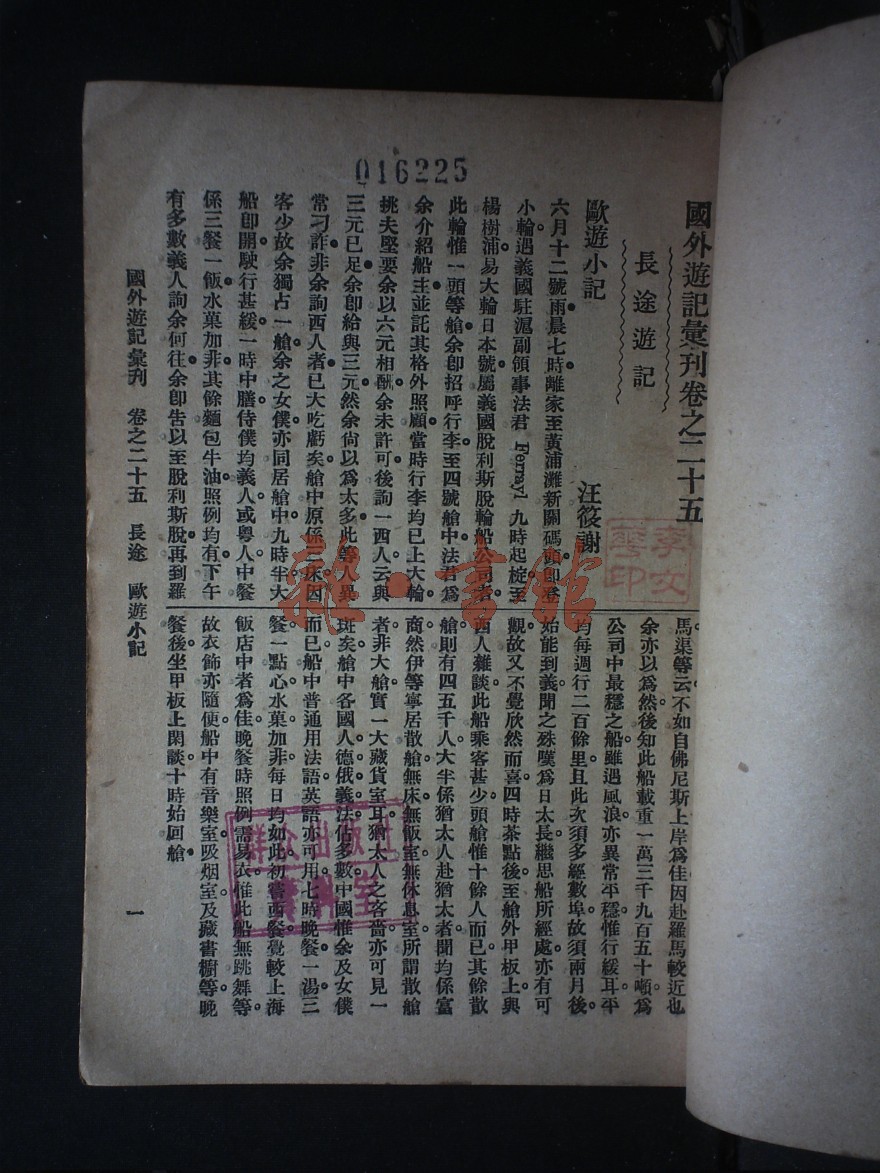 016225
國外遊記彙刊卷之二十五
長途遊記
歐遊小記　汪筱謝
六月十二號雨晨七時離家至黃浦灘新關碼頭即登
小輪遇義國駐滬副領事法君 Ferrayi 九時起椗至
楊樹浦易大輪日本號屬義國脫利斯脫輪船公司者
此輪惟一頭等艙余即招呼行李至四號艙中法君爲
余介紹船主並託其格外照顧當時行李均已上大輪
挑夫堅要余以六元相酬余未許可後詢一西人云與
三元已足余卽給與三元然余尙以爲太多此等人異
常刁詐非余詢西人者已大吃虧矣艙中原係二床因
客少故余獨占一艙余之女僕亦同居艙中九時半大
船卽開駛行甚緩一時中膳侍僕均義人或粤人中餐
係三餐一飯水菓加非其餘麵包牛油照例均有下午
有多數義人詢余何往余卽告以至脫利斯脫再到羅
馬渠等云不如自佛尼斯上岸爲佳因赴羅馬較近也
余亦以爲然後知此船載重一萬三千九百五十噸爲
公司中最穩之船雖遇風浪亦異常平穩惟行緩耳平
均每週行二百餘里且此次須多經數埠故須兩月後
始能到義聞之殊嘆爲日太長繼思船所經處亦有可
觀故又不覺欣然而喜四時茶點後至艙外甲板上與
西人雜談此船乘客甚少頭艙惟十餘人而已其餘散
艙則有四五千人大半係猶太人赴猶太者聞均係富
商然伊等寧居散艙無床無飯室無休息室所謂散艙
者非大艙實一大藏貨室耳猶太人之吝嗇亦可見一
斑矣艙中各國人德俄義法佔多數中國惟余及女僕
而已船中普通用法語英語亦可用七時晚餐一湯三
餐一點心水菓加非每日均如此初嘗西餐覺較上海
飯店中者爲佳晚餐時照例需易衣惟此船無跳舞等
故衣飾亦隨便船中有音樂室吸烟室及藏書櫥等晚
餐後坐甲板上閑談十時始回艙
國外遊記彙刊　卷之二十五　長途　歐遊小記　一
雜·書館
群众出版社